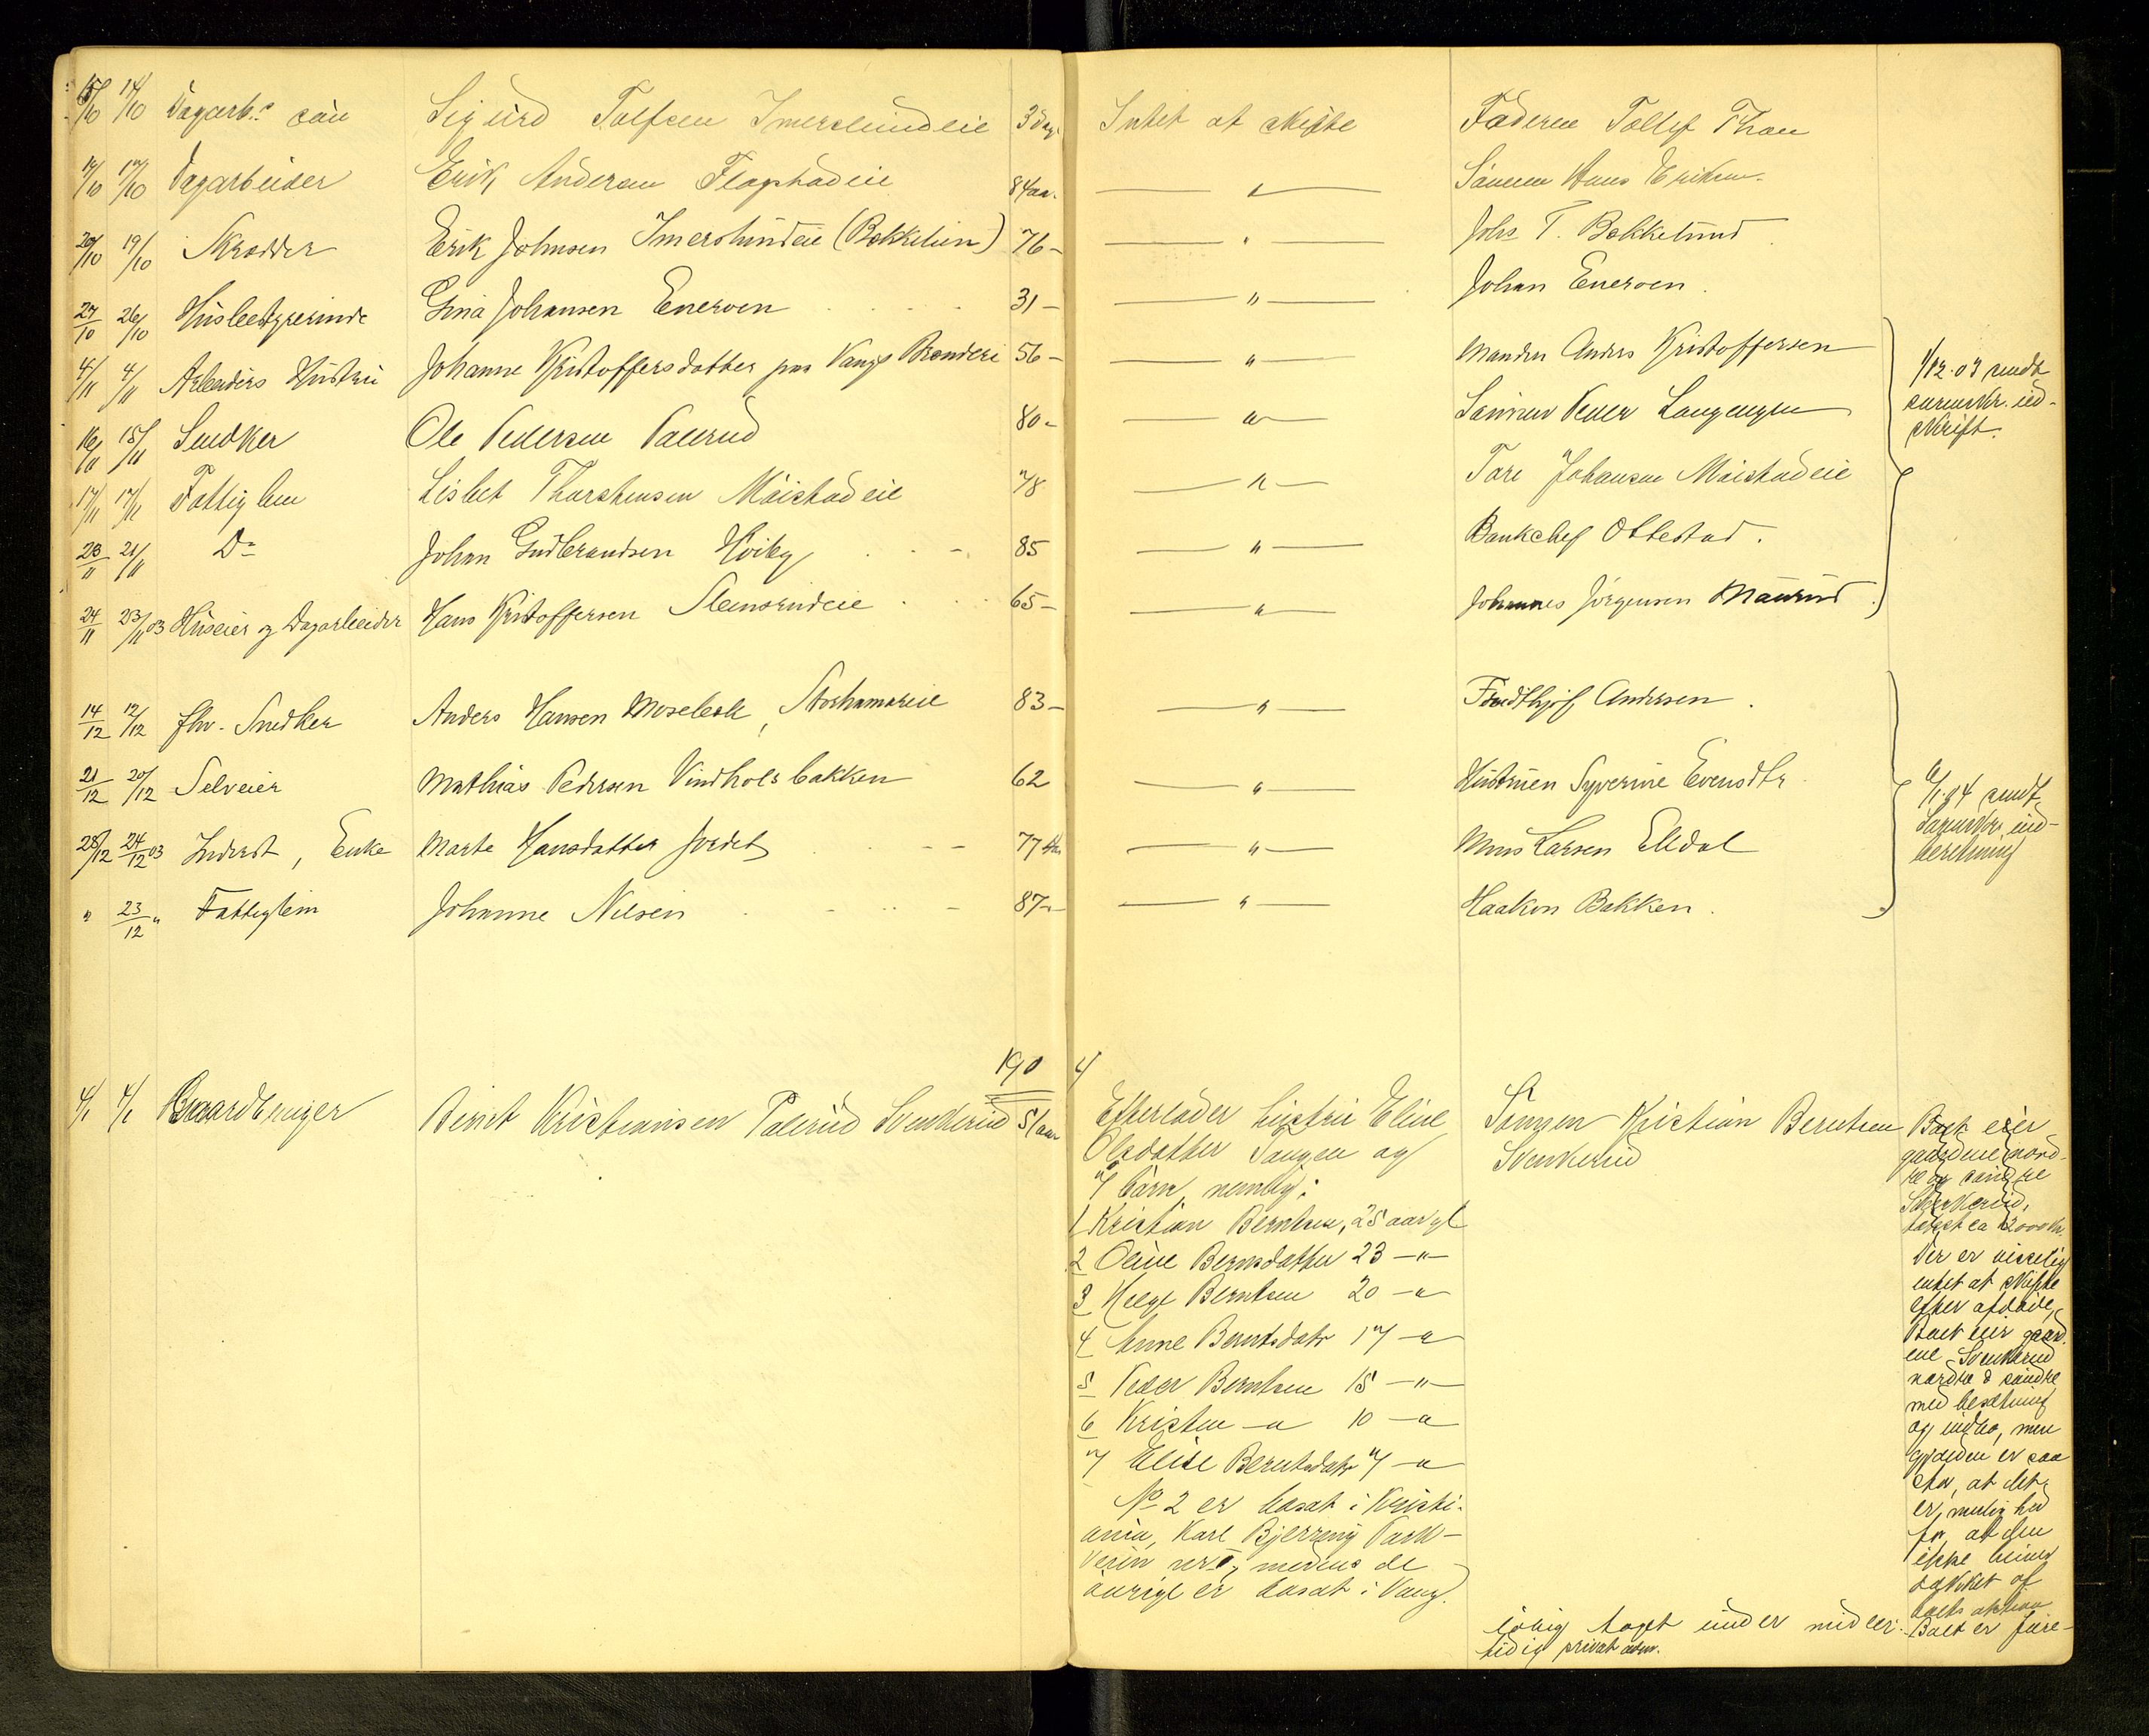 15/10 14/10 Dagarb.s sön Sigurd Tolfsen Imerslundeie 3 dag Intet at skifte Faderen Tollef Thon
17/10 17/10 Dagarbeider Erik Andersen Flagstadeie 84 aa. — " — Sönnen Hans Eriksen
20/10 19/10 Skrædder Erik Johnsen Imerslundeie (Bækkelien) 76 — " — Johs T. Bækkelund
27/10 26/10 Husbestyrerinde Gina Johansen Eneroen 31 — " — Johan Eneroen.
4/11 4/11 Arbeiders Hustru Johanne Kristoffersdatter paa Vangs Brænderi 56 — " — Manden Anders Kristoffersen
16/11 15/11 Snedker Ole Pedersen Palerud 80 — " — Sönnen Peder
17/11 17/11 Fattiglem Lisbet Thorstensen Möistadeie 78 — " — Tore Johansen Möistadeie
23/11 21/11 Do Johan Gudbrandsen Höiby 85 — " — Bankchef Ottestad.
24/11 23/11 03 Huseier og Dagarbeider Hans Kristoffersen Stensrudeie 65 — " — Johannes Jörgensen Maurud
1/12.03 sendt
sorenskr. ud-
skrift.
14/12 12/12 fhv. Snedker Anders Hansen Mosebæk, Storhamareie 83 — " — Fridthjof Andersen.
21/12 20/12 Selveier Mathias Pedersen Vindholsbakken 62 — " — Hustruen Syverine Evensdtr
28/12 24/12 03 Inderst, Enke Marte Hansdatter Jordet 77 — " — Mons Larsen Elldal
" 23/12 " Fattiglem Johanne Nilsen 87 — " — Haakon Bakken.
sendt
Sorenskr. ind-
beretning
1904
4/1 4/1 Gaardbruger Bernt Kristiansen Palerud Svenkerud 51 aar
Efterlader hustru Eline
Olsdatter Tangen og
7 börn, nemlig:
1 Kristian Berntsen, 25 aar gl
2 Oline Berntsdatter 23 — " —
3 Helge Berntsen 20 — " —
4 Anne Berntsdatr 17 — " —
5 Peder Berntsen 15 — " —
6 Kristen — " 10 — " —
7 Elise Berntsdatr 7 — " —
No 2 er bosat i Kristi-
ania, Karl Bjerzeng
medens de
övrige er bosat i Vang.
Sönnen Kristian Berntsen
Svenkerud
Boet eier
gaardene nord-
re og söndre
Svenkerud,
takst ca 12000 kr.
Der er visselig
intet at skifte
efter afdöde,
Boet eier gaard-
ene Svenkerud
nordre & söndre
med besætning
og indbo, men
gjælden er saa
stor, at det
er, at den
ikke
dækket af
boets aktiva
Boet er fore-
löbig taget under midler-
tidig privat adm.